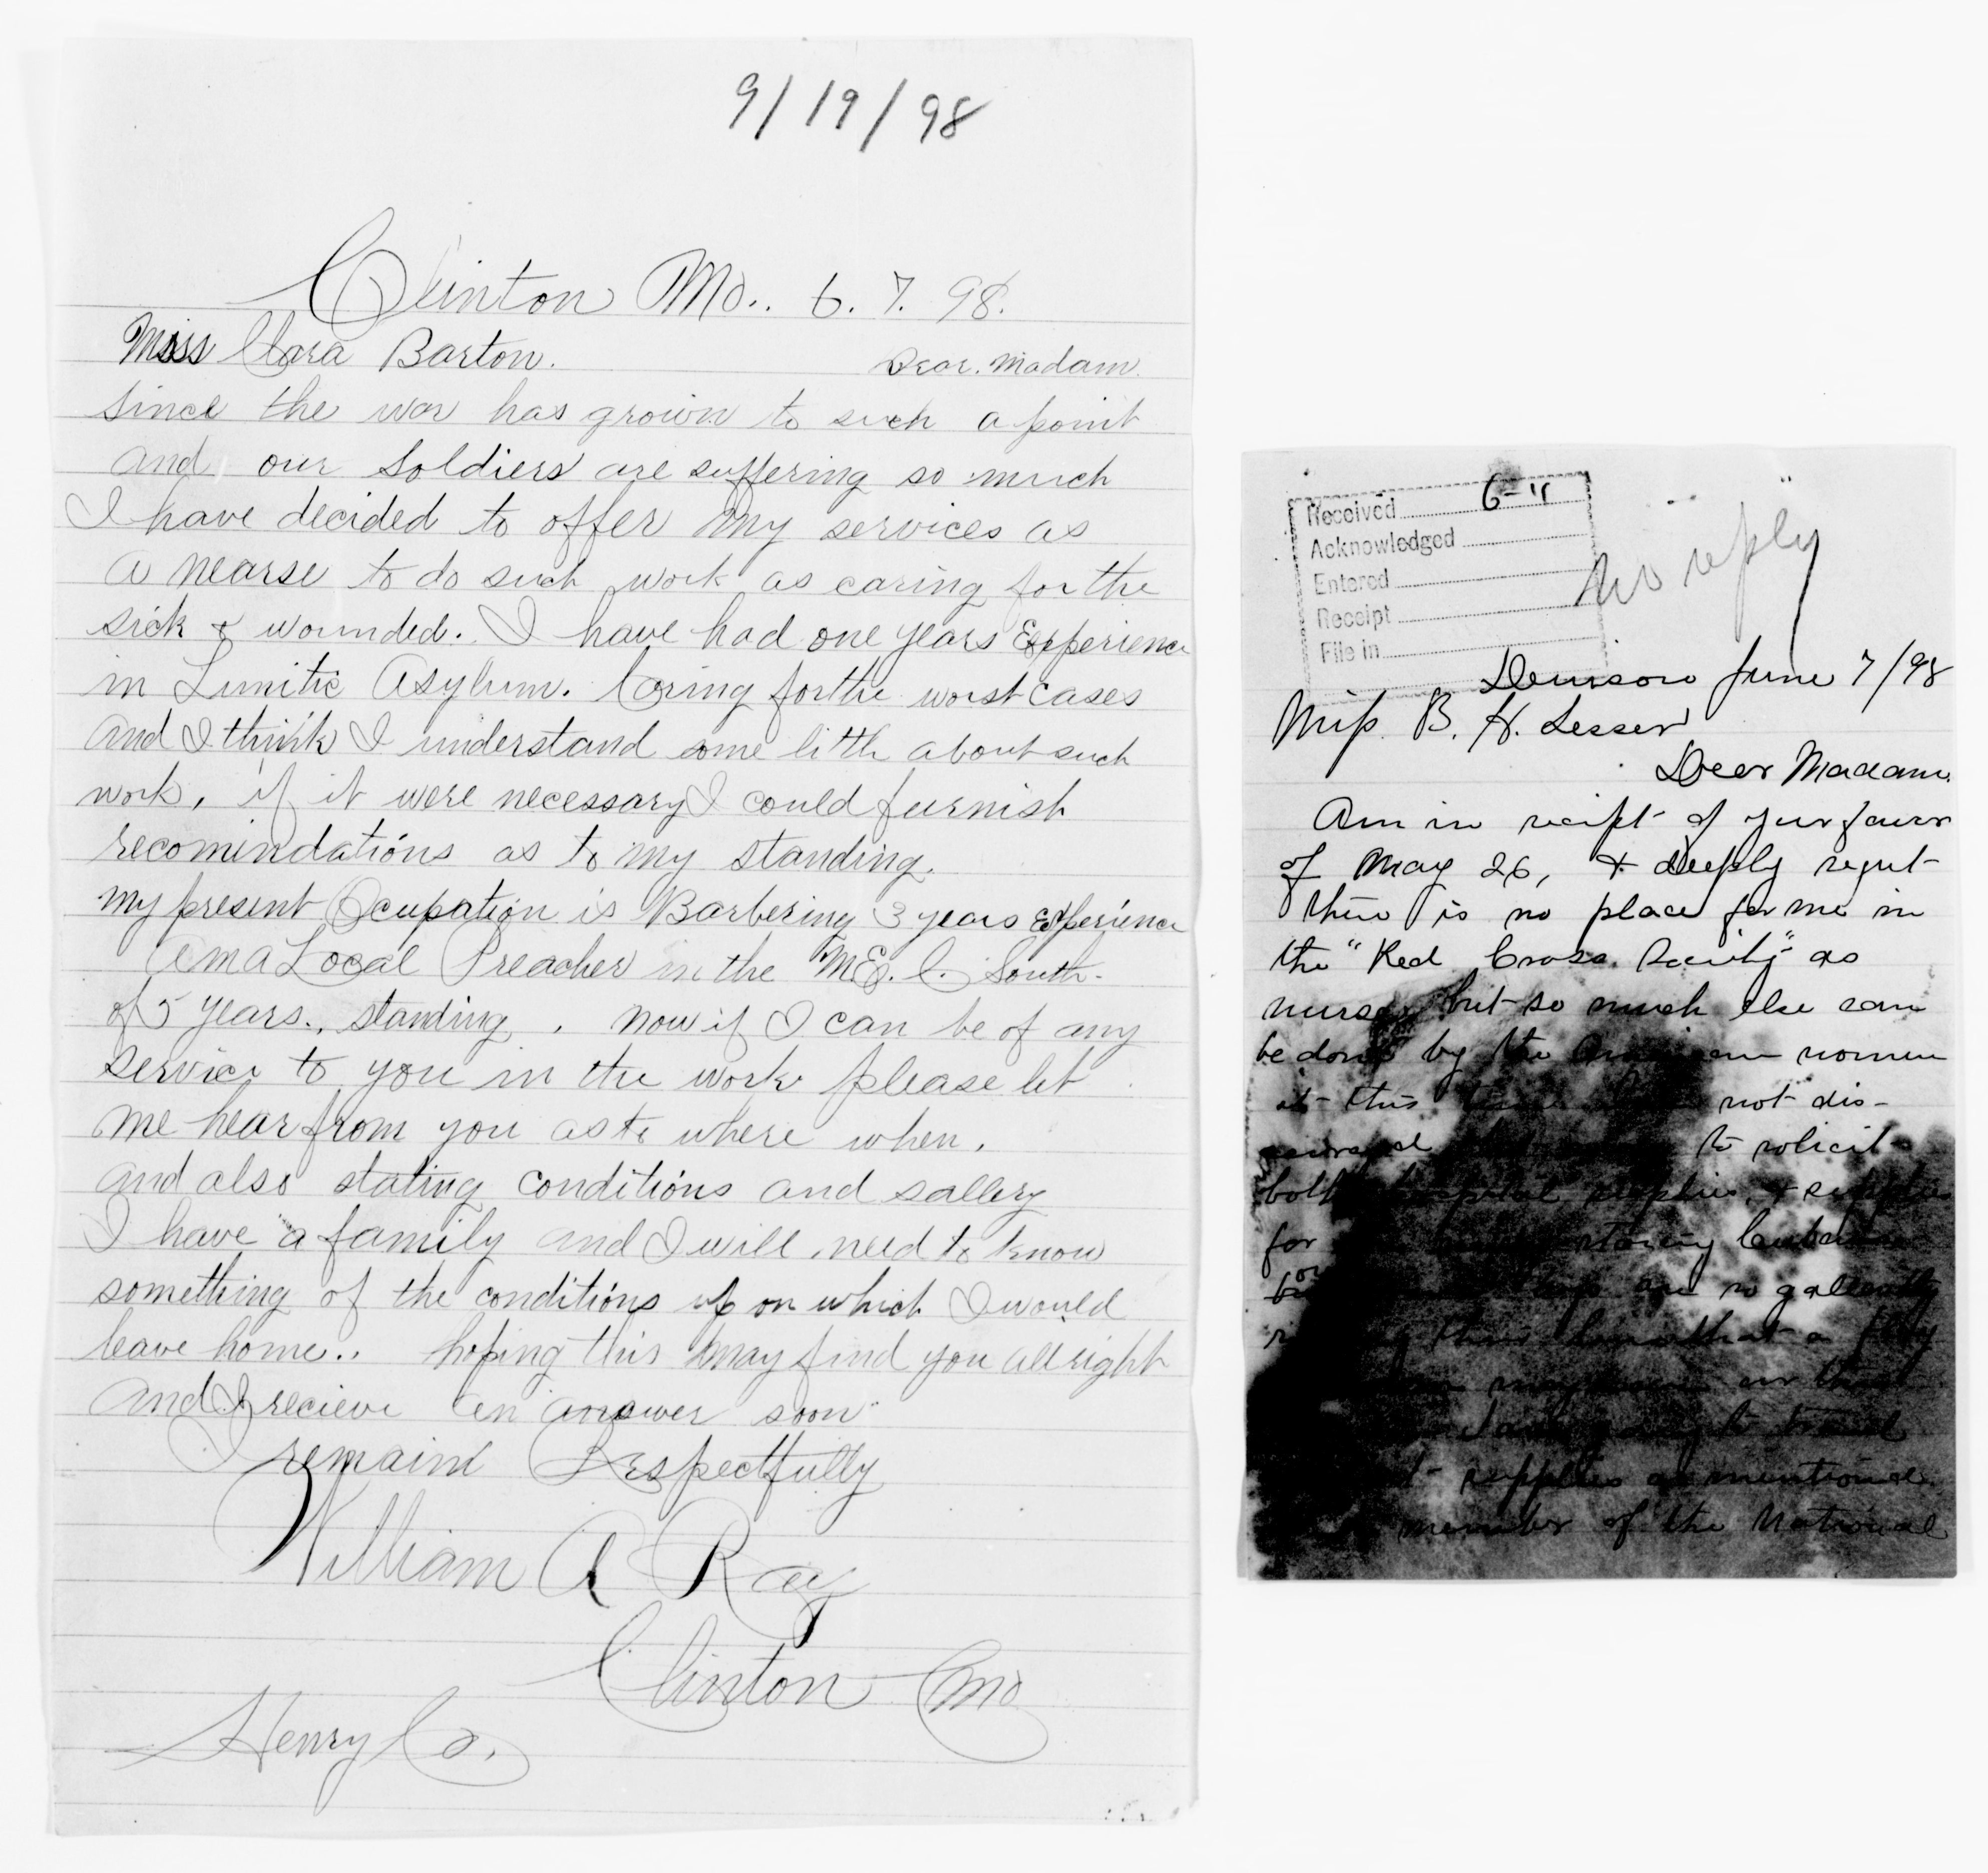 9/19/98
Clinton Mo.. 6. 7. 98.
Miss Clara Barton. Dear. Madam.
since the war has grown to such a point
and our soldiers are suffering so much
I have decided to offer my services as
a nearse to do such work as caring for the
sick & wounded. I have had one years Experience
in Lunitic Asylum. Caring for the worst cases
and I think I understand some little about such
work, if it were necessary I could furnish
recomindations as to my standing.
my present Ocupation is Barbering 3 years experience
Am a Local Preacher in the M.E. C. South.
of 5 years., standing. now if I can be of any
service to you in the work please let
me hear from you as to where when.
and also stating conditions and sallery
I have a family and I will need to know
something of the conditions up on which I would
leave home.. hoping this may find you all right
and I recieve an answer soon
I remaine Respectfully
William A Ray
Clinton Mo
Henry Co.
Received 6-11
Acknowledged
Entered
Receipt
File in
No reply
Denison June 7/98
Miss. B. H. Lesser
Dear Madam.
Am in recipt of your favor
of May 26, & deeply regret
there is no place for me in
the "Red Cross Society" as
nurse, but so much else can
be done by the American women
at this not dis-
to solicit
both hospital supplies, & supplies
for starving Cubans
for are so gallantly
their lives that a
supplies as mentioned
member of the National